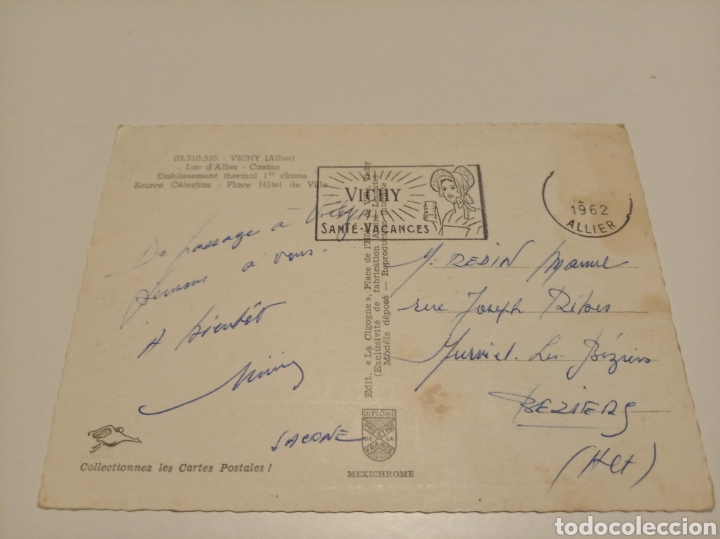 03.310.535 - VICHY (Allier)
Lac d'Allier - Casino
Etablissement thermal 1re classe
Source Célestins - Place Hôtel de Ville
VICHY
SANTÉ-VACANCES
1962
ALLIER
De passage à Vichy
pensons à vous.
A bientôt
JACONE
Edit. « La Cigogne », Place de l'Hôtel de Ville, Vichy
(Exclusivité de fabrication
Modèle déposé — Reproduction interdite
M. REDIN
rue Joseph
Murviel Les Béziers
BEZIERS
(Hlt)
DIPLOME
PRESTIGE
DE LA
FRANCE
MEXICHROME
Collectionnez les Cartes Postales !
todocoleccion.net